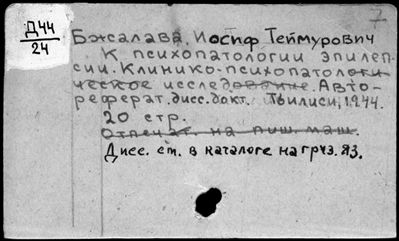 7
Д44
24
Бжсалава, Иосиф Теймурович
К психопатологии эпилеп-
сии. Клинико-психопатологи-
ческое исследование. Авто-
реферат. дисс. докт. Тбилиси, 1944.
20 стр.
Отпечат. на пиш. маш.
Дисс. см. в каталоге на груз. яз.